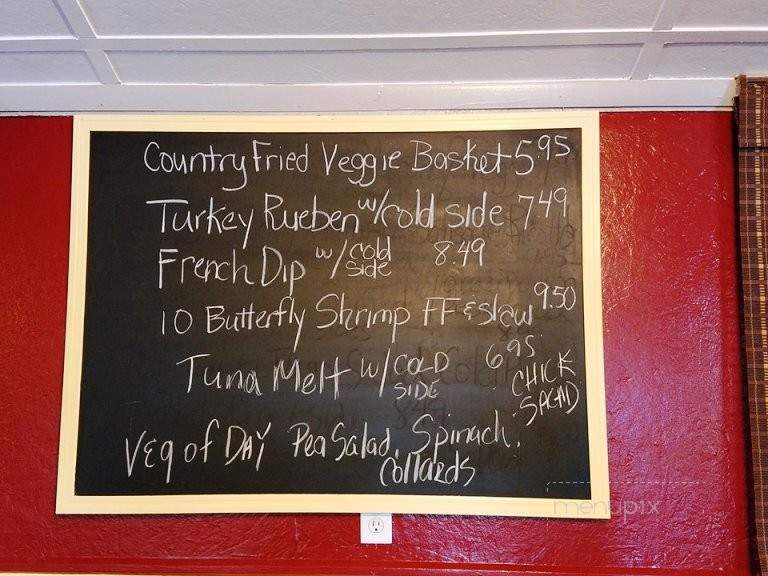 Country Fried Veggie Basket 5.95
Turkey Rueben w/cold side 7.49
French Dip w/cold side 8.49
10 Butterfly Shrimp FF & slaw 9.50
Tuna Melt w/COLD SIDE 6.95
CHICK SALAD
Veg of DAY Pea Salad, Spinach,
Collards
menupix